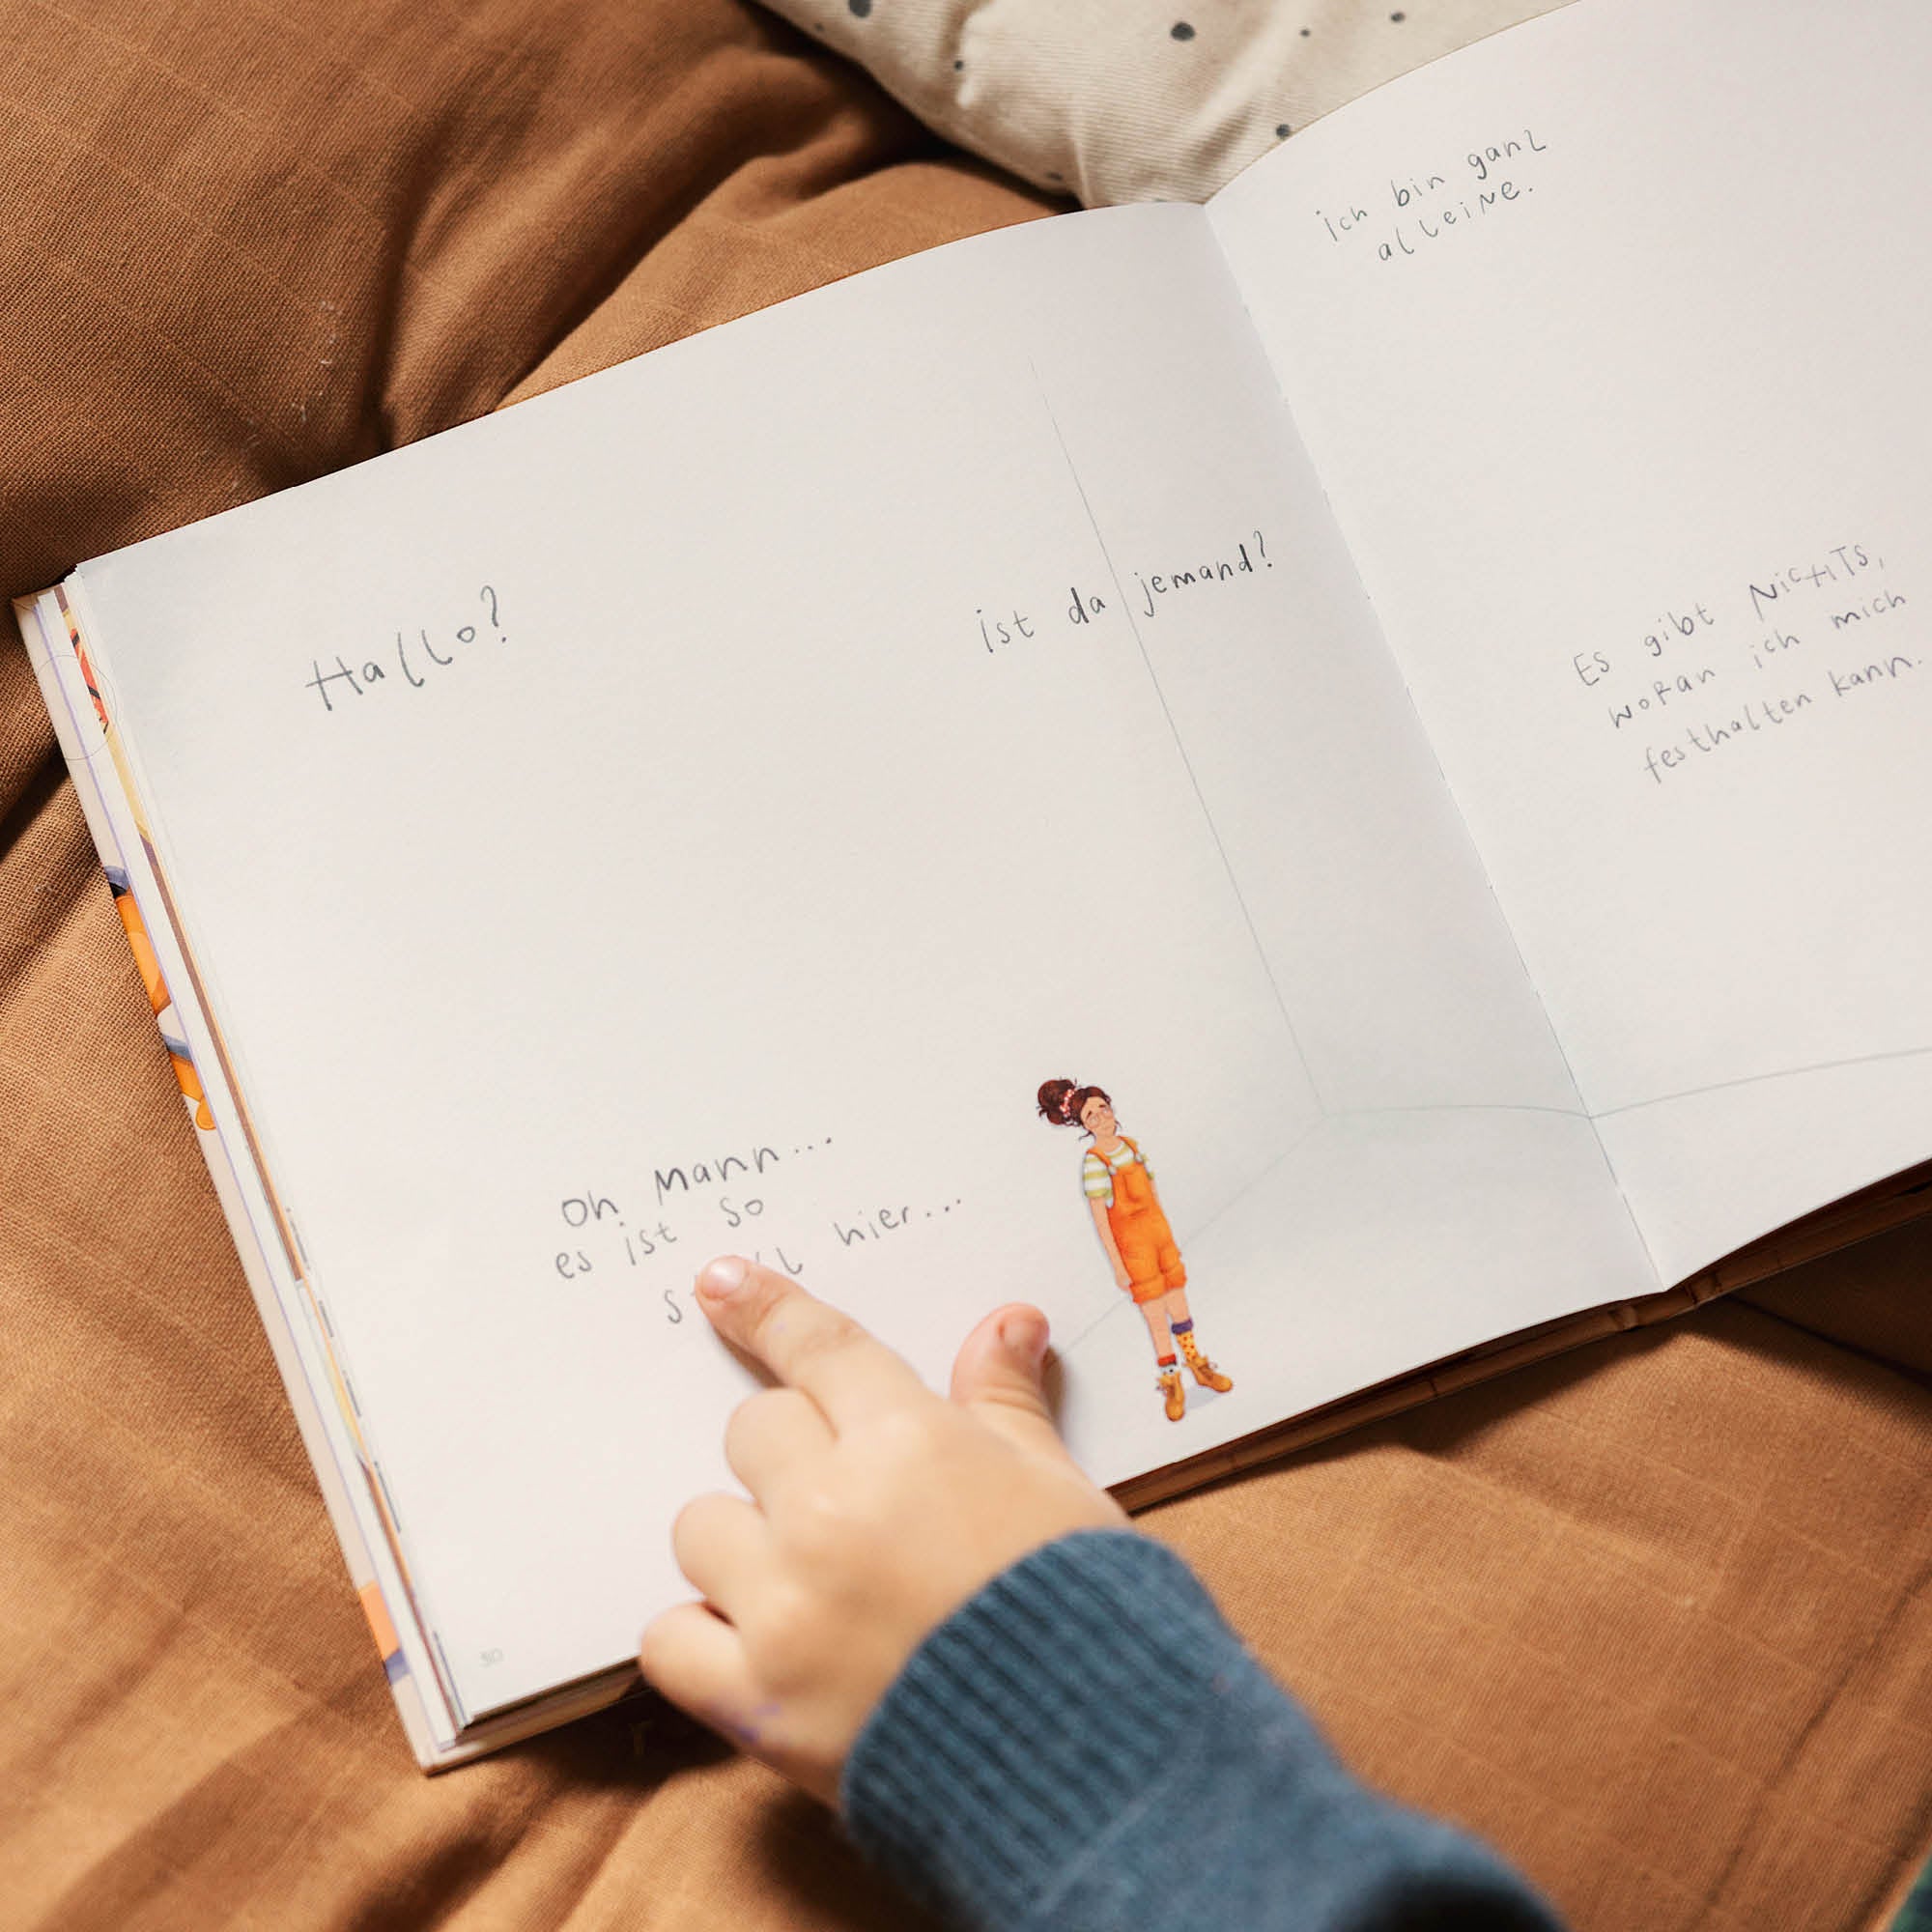 Hallo?
ist da jemand?
Oh Mann...
es ist so
hier...
30
ich bin ganz
alleine.
Es gibt NicHTs,
woRan ich mich
festhalten kann.